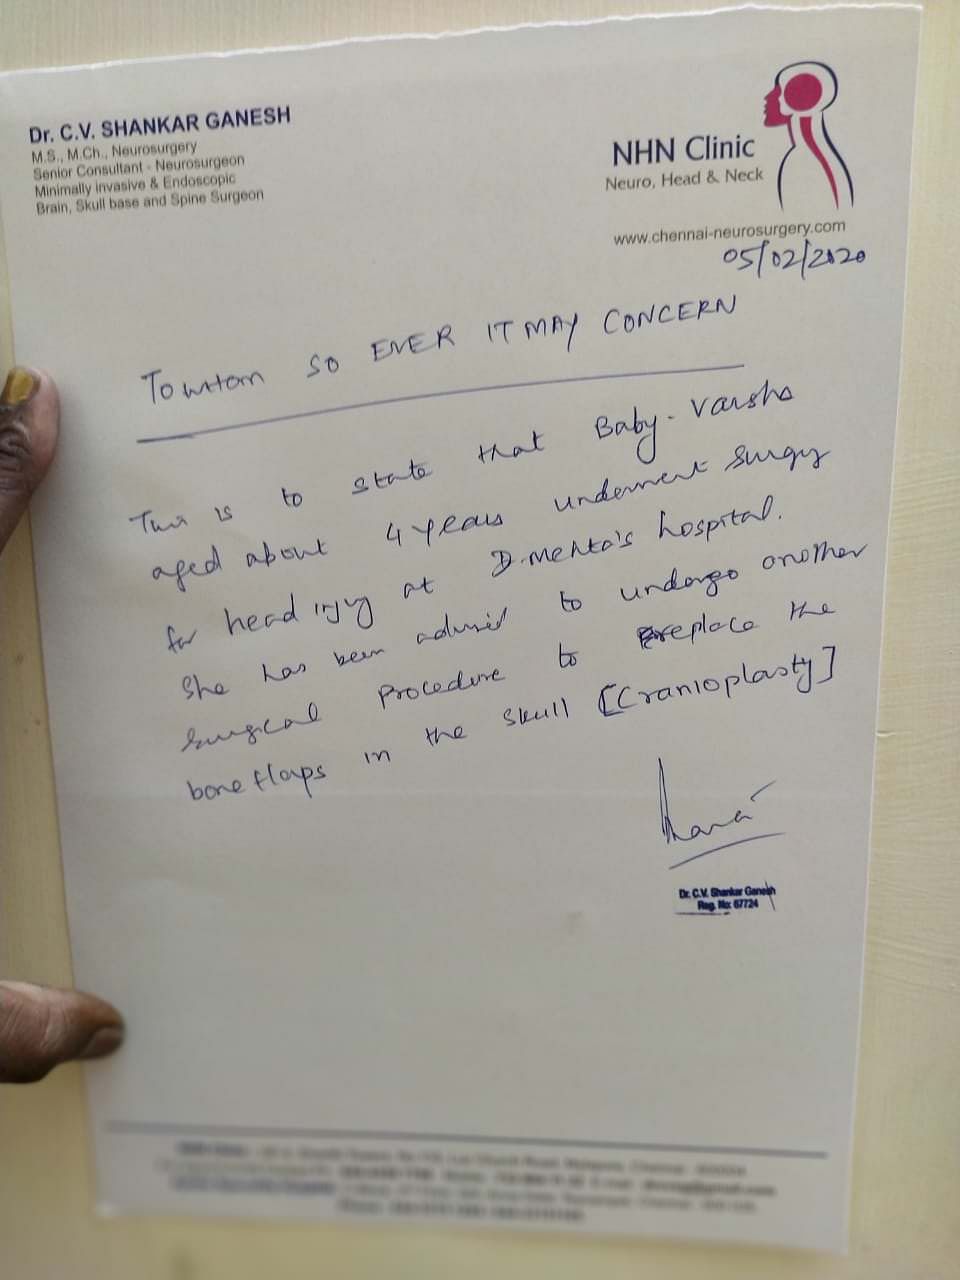 Dr. C.V. SHANKAR GANESH
M.S., M.Ch., Neurosurgery
Senior Consultant - Neurosurgeon
Minimally invasive & Endoscopic
Brain, Skull base and Spine Surgeon
NHN Clinic
Neuro, Head & Neck
www.chennai-neurosurgery.com
05/02/2020
TO WHOM SO EVER IT MAY CONCERN
This is to state that Baby. Varsha
aged about 4 years underwent surgery
for head injury at Dr. Mehta's hospital.
She has been advised to undergo another
surgical Procedure to replace the
bone flaps in the skull [Cranioplasty]
Dr. C.V. Shankar Ganesh
Reg. No: 67724